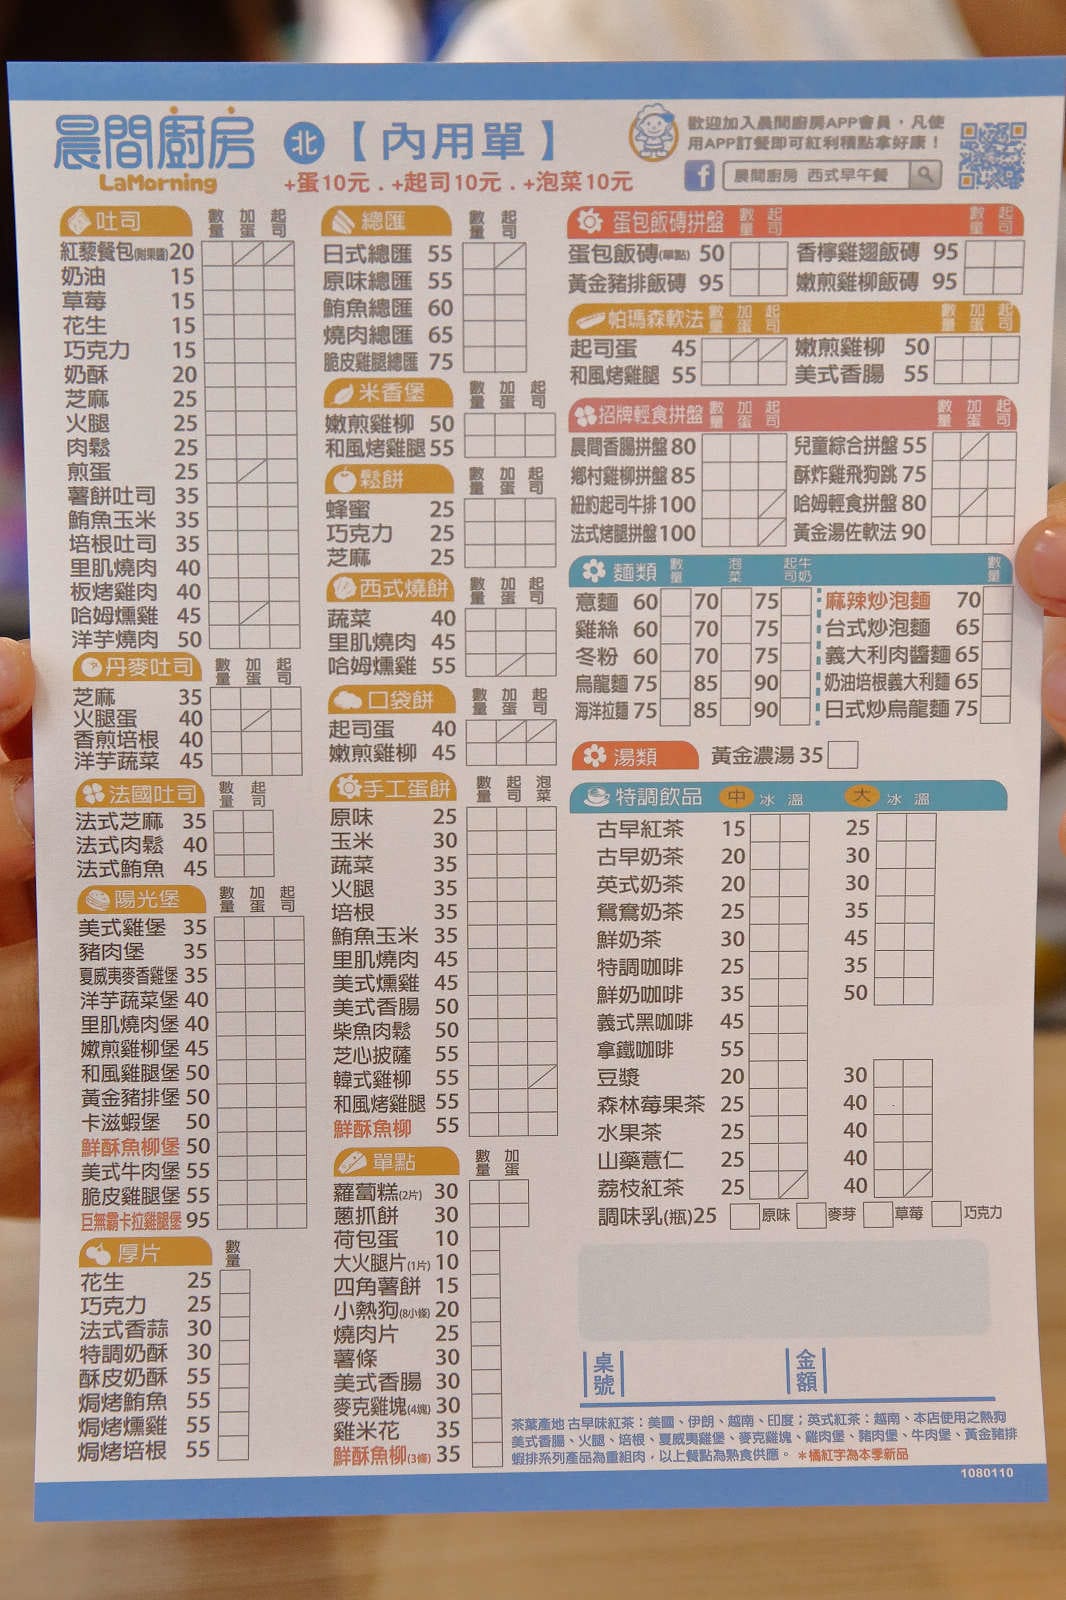 晨間廚房
LaMorning
北【內用單】
+蛋10元 . +起司10元 . +泡菜10元
歡迎加入晨間廚房APP會員，凡使
用APP訂餐即可紅利積點拿好康！
f 晨間廚房 西式早午餐
吐司 數量 加蛋 起司
紅藜餐包(附果醬)20
奶油 15
草莓 15
花生 15
巧克力 15
奶酥 20
芝麻 25
火腿 25
肉鬆 25
煎蛋 25
薯餅吐司 35
鮪魚玉米 35
培根吐司 35
里肌燒肉 40
板烤雞肉 40
哈姆燻雞 45
洋芋燒肉 50
丹麥吐司 數量 加蛋 起司
芝麻 35
火腿蛋 40
香煎培根 40
洋芋蔬菜 45
法國吐司 數量 起司
法式芝麻 35
法式肉鬆 40
法式鮪魚 45
陽光堡 數量 加蛋 起司
美式雞堡 35
豬肉堡 35
夏威夷麥香雞堡 35
洋芋蔬菜堡 40
里肌燒肉堡 40
嫩煎雞柳堡 45
和風雞腿堡 50
黃金豬排堡 50
卡滋蝦堡 50
鮮酥魚柳堡 50
美式牛肉堡 55
脆皮雞腿堡 55
巨無霸卡拉雞腿堡 95
厚片 數量
花生 25
巧克力 25
法式香蒜 30
特調奶酥 30
酥皮奶酥 55
焗烤鮪魚 55
焗烤燻雞 55
焗烤培根 55
總匯 數量 起司
日式總匯 55
原味總匯 55
鮪魚總匯 60
燒肉總匯 65
脆皮雞腿總匯 75
米香堡 數量 加蛋 起司
嫩煎雞柳 50
和風烤雞腿 55
鬆餅 數量 加蛋 起司
蜂蜜 25
巧克力 25
芝麻 25
西式燒餅 數量 加蛋 起司
蔬菜 40
里肌燒肉 45
哈姆燻雞 55
口袋餅 數量 加蛋 起司
起司蛋 40
嫩煎雞柳 45
手工蛋餅 數量 起司 泡菜
原味 25
玉米 30
蔬菜 35
火腿 35
培根 35
鮪魚玉米 35
里肌燒肉 45
美式燻雞 45
美式香腸 50
柴魚肉鬆 50
芝心披薩 55
韓式雞柳 55
和風烤雞腿 55
鮮酥魚柳 55
單點 數量 加蛋
蘿蔔糕(2片) 30
蔥抓餅 30
荷包蛋 10
大火腿片(1片) 10
四角薯餅 15
小熱狗(8小條) 20
燒肉片 25
薯條 30
美式香腸 30
麥克雞塊(4塊) 30
雞米花 35
鮮酥魚柳(3條) 35
蛋包飯磚拼盤 數量 起司 數量 起司
蛋包飯磚(單點) 50 香檸雞翅飯磚 95
黃金豬排飯磚 95 嫩煎雞柳飯磚 95
帕瑪森軟法 數量 加蛋 起司 數量 加蛋 起司
起司蛋 45 嫩煎雞柳 50
和風烤雞腿 55 美式香腸 55
招牌輕食拼盤 數量 加蛋 起司 數量 加蛋 起司
晨間香腸拼盤 80 兒童綜合拼盤 55
鄉村雞柳拼盤 85 酥炸雞飛狗跳 75
紐約起司牛排 100 哈姆輕食拼盤 80
法式烤腿拼盤 100 黃金湯佐軟法 90
麵類 數量 泡菜 起司牛奶 數量
意麵 60 70 75 麻辣炒泡麵 70
雞絲 60 70 75 台式炒泡麵 65
冬粉 60 70 75 義大利肉醬麵 65
烏龍麵 75 85 90 奶油培根義大利麵 65
海洋拉麵 75 85 90 日式炒烏龍麵 75
湯類 黃金濃湯 35
特調飲品 中 冰 溫 大 冰 溫
古早紅茶 15 25
古早奶茶 20 30
英式奶茶 20 30
鴛鴦奶茶 25 35
鮮奶茶 30 45
特調咖啡 25 35
鮮奶咖啡 35 50
義式黑咖啡 45
拿鐵咖啡 55
豆漿 20 30
森林莓果茶 25 40
水果茶 25 40
山藥薏仁 25 40
荔枝紅茶 25 40
調味乳(瓶)25 原味 麥芽 草莓 巧克力
桌號 金額
茶葉產地 古早味紅茶：美國、伊朗、越南、印度；英式紅茶：越南、本店使用之熱狗
美式香腸、火腿、培根、夏威夷雞堡、麥克雞塊、雞肉堡、豬肉堡、牛肉堡、黃金豬排
蝦排系列產品為重組肉，以上餐點為熟食供應。 *橘紅字為本季新品
1080110